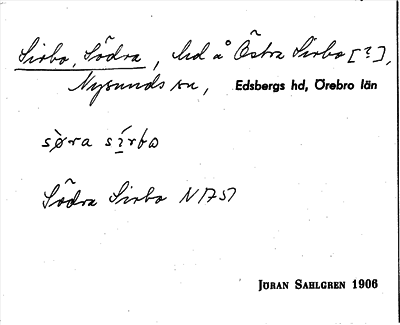 Sirbo, Södra, hd å Östra Sirbo [?],
Nysunds sn, Edsbergs hd, Örebro län
sø̀ra sírbo
Södra Sirbo N1757
JÖRAN SAHLGREN 1906